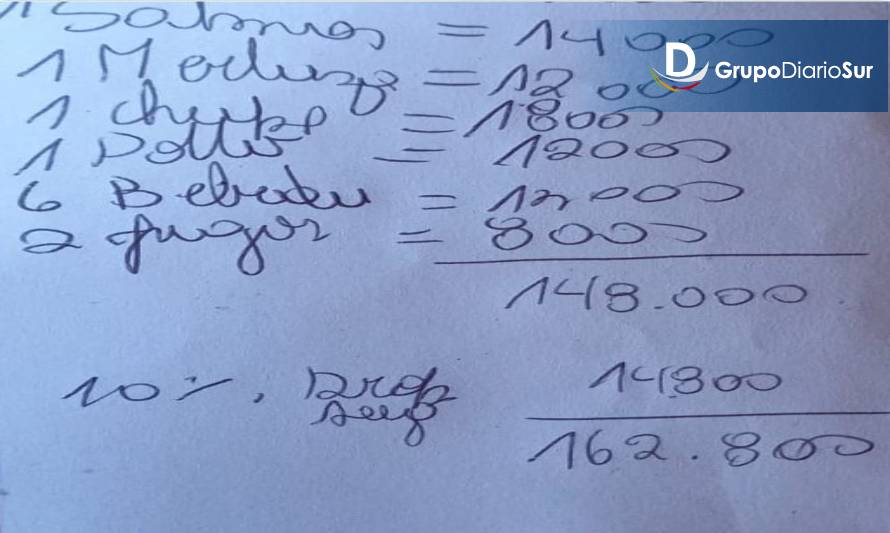 1 Salmos = 14000
1 Merluza = 12000
1 Chupe = 18000
1 Pollo = 12000
6 Bebidas = 12000
2 Jugos = 8000
148.000
10%. Prop 14800
Suge
162.800
GrupoDiarioSur